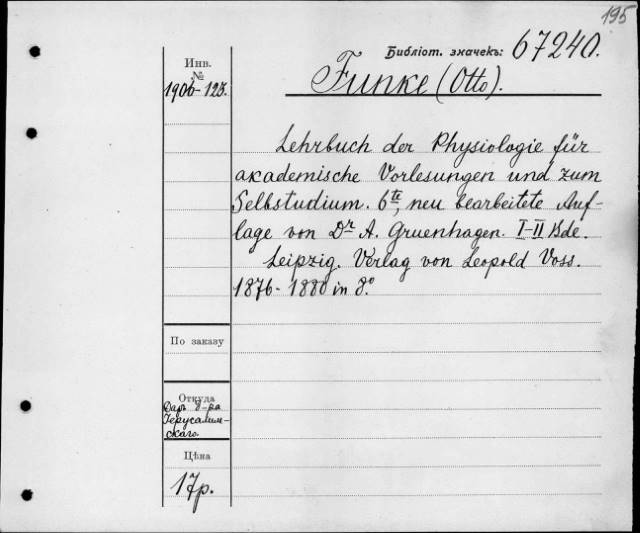 195
Библіот. значекъ: 67240.
Инв.
№
1906-125.
Funke (Otto).
Lehrbuch der Physiologie für
akademische Vorlesungen und zum
Selbstudium. 6te, neu bearbeitete Auf-
lage von Dr A. Gruenhagen. I-II Bde.
Leipzig. Verlag von Leopold Voss.
1876-1880 in 8º.
По заказу
Откуда
Даръ д-ра
Іерусалим-
скаго.
Цѣна
17р.